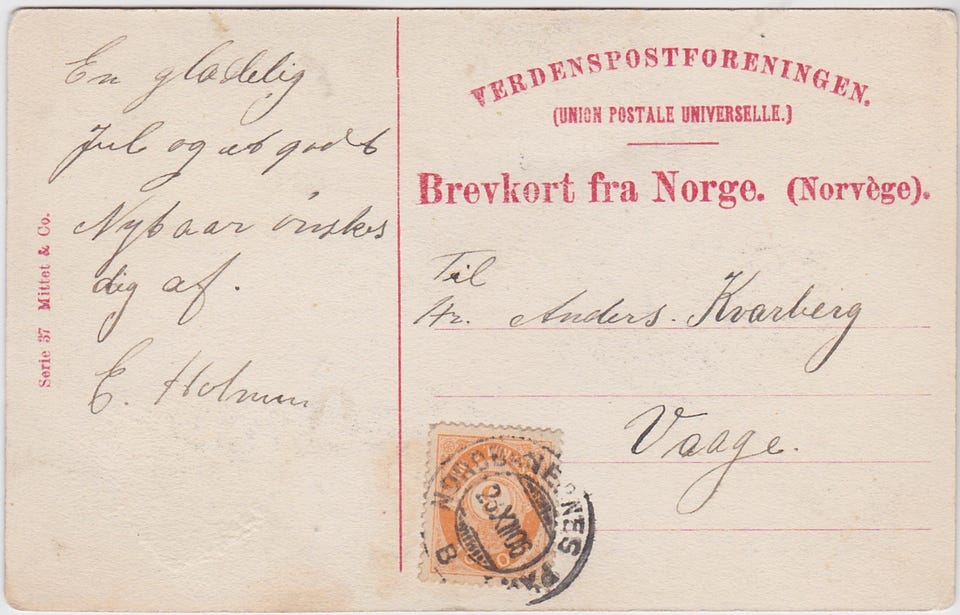 En glædelig
Jul og et godt
Nytaar ønskes
dig af.
E. Holmen
Serie 37 Mittet & Co.
VERDENSPOSTFORENINGEN.
(UNION POSTALE UNIVERSELLE.)
Brevkort fra Norge. (Norvège).
Til
Hr. Anders. Kvarberg
Vaage.
23 XII 06
B